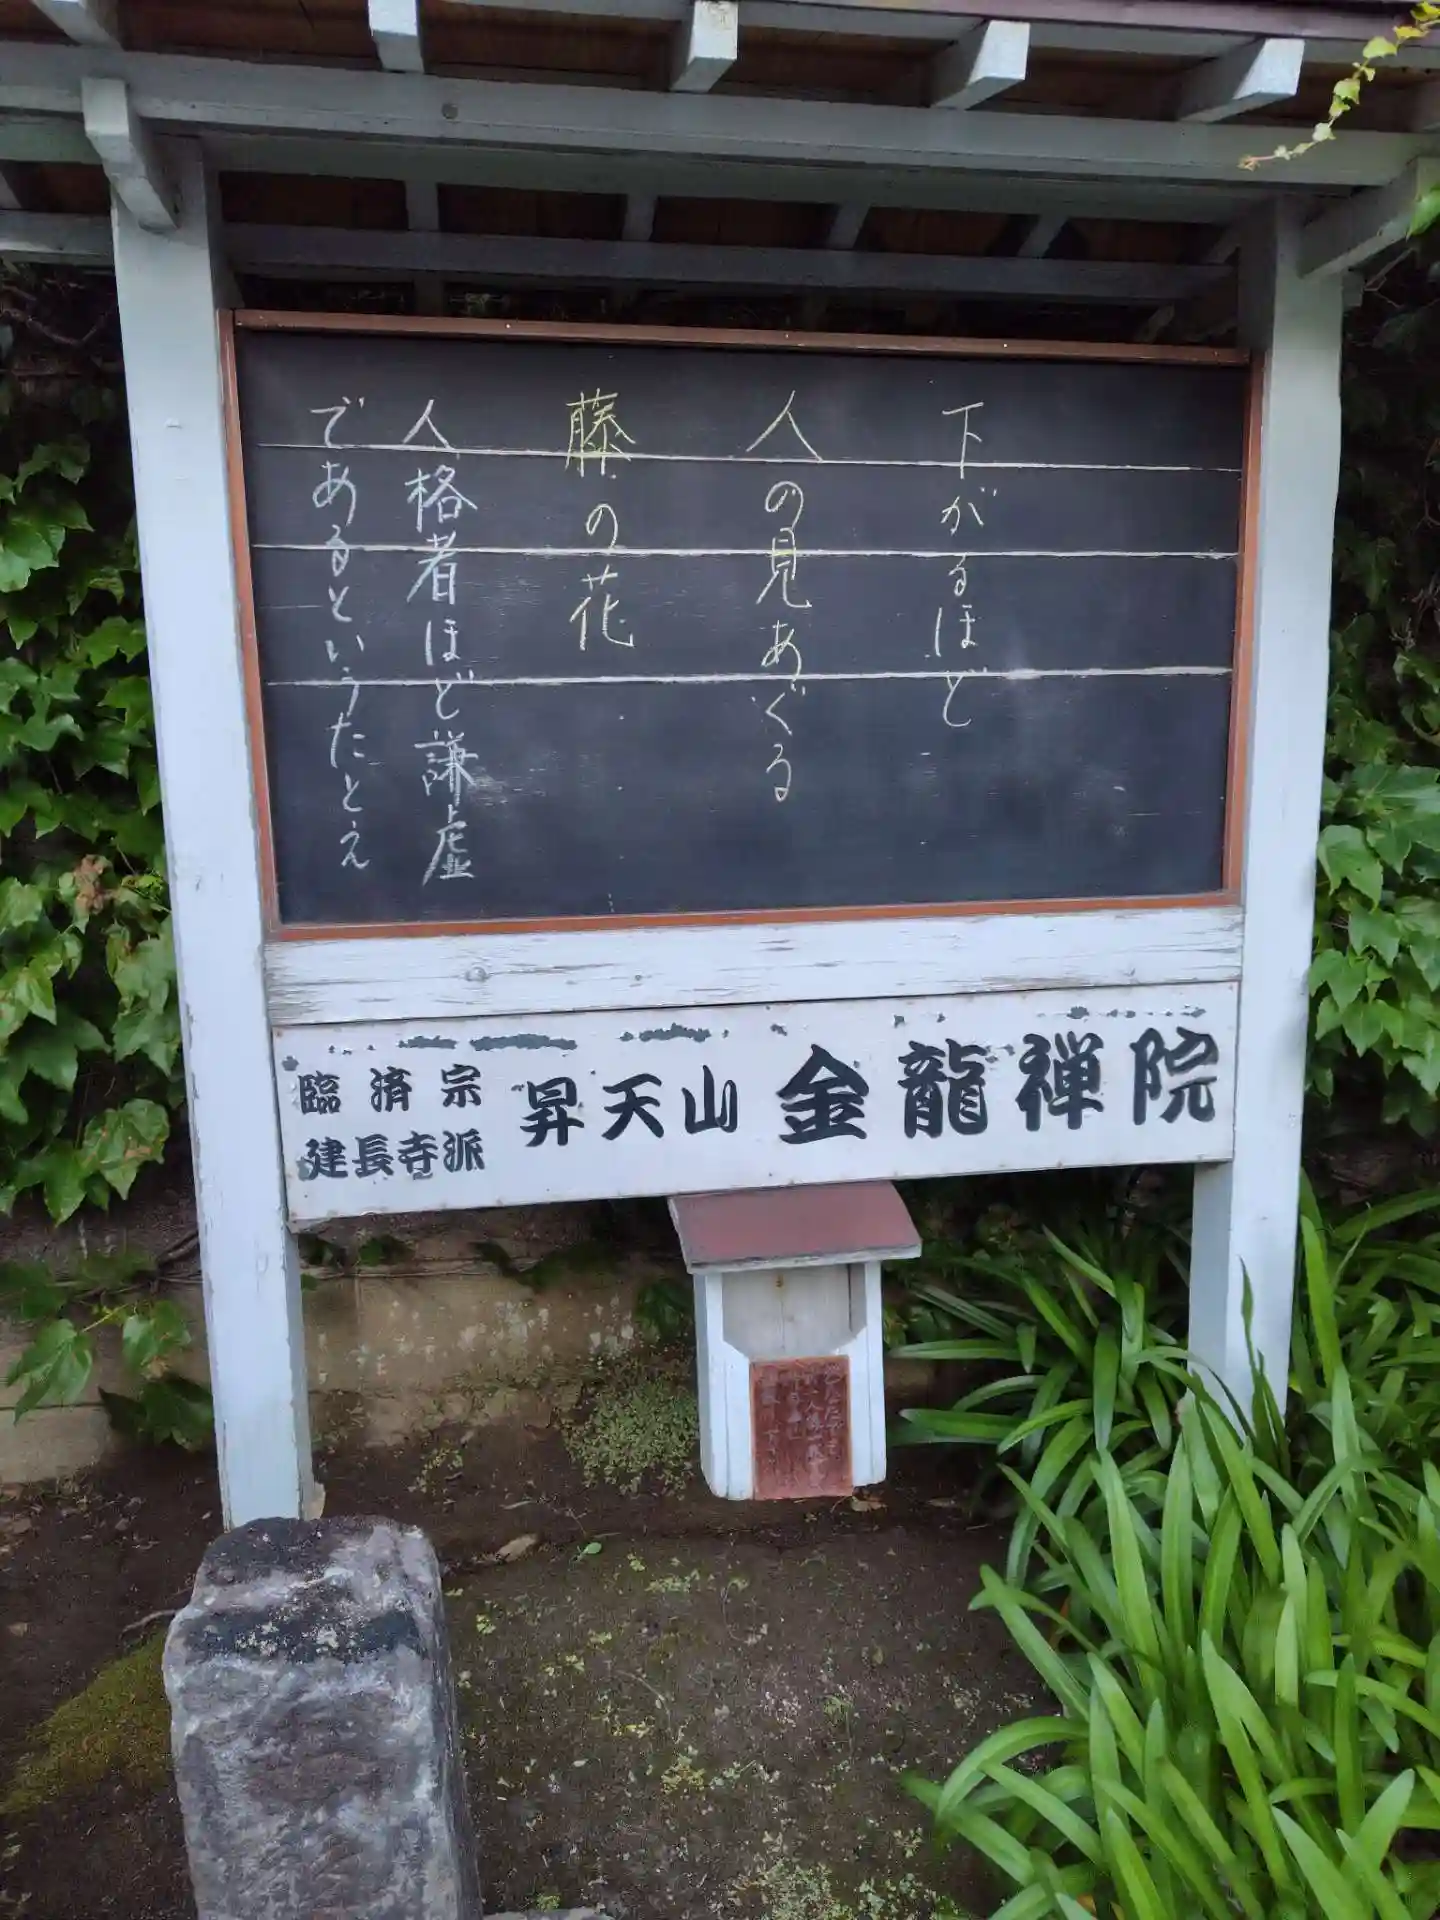 下がるほど
人の見あぐる
藤の花
人格者ほど謙虚
であるというたとえ
臨済宗
建長寺派
昇天山 金龍禅院